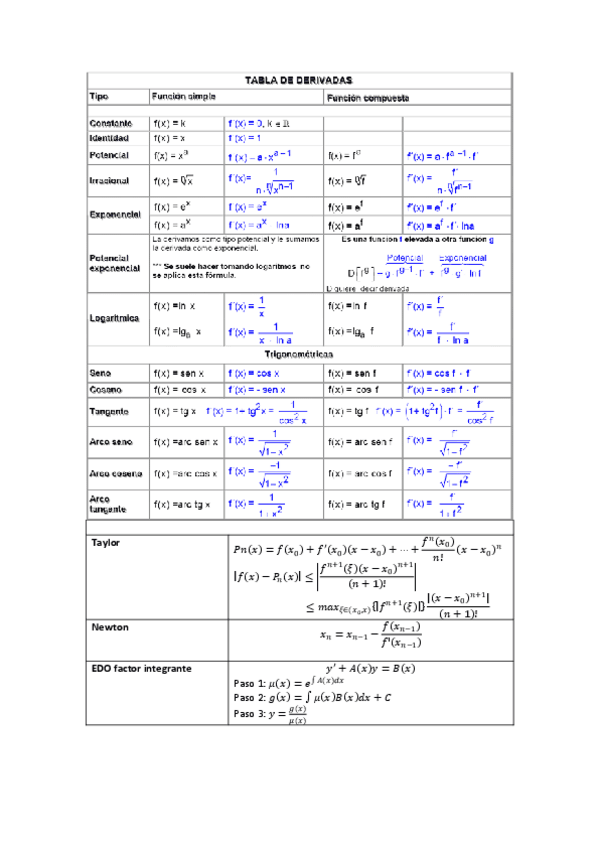 TABLA DE DERIVADAS
Tipo Función simple Función compuesta
Constante f(x) = k f´(x) = 0, k ∈ R
Identidad f(x) = x f´(x) = 1
Potencial f(x) = xᵃ f´(x) = a · xᵃ⁻¹ f(x) = fᵃ f´(x) = a · fᵃ⁻¹ · f´
Irracional f(x) = ⁿ√x f´(x) = 1 / (n · ⁿ√xⁿ⁻¹) f(x) = ⁿ√f f´(x) = f´ / (n · ⁿ√fⁿ⁻¹)
Exponencial f(x) = eˣ f´(x) = eˣ f(x) = e^f f´(x) = e^f · f´
f(x) = aˣ f´(x) = aˣ · lna f(x) = a^f f´(x) = a^f · f´ · lna
Potencial exponencial
La derivamos como tipo potencial y le sumamos
la derivada como exponencial.
*** Se suele hacer tomando logaritmos no
se aplica esta fórmula.
Es una función f elevada a otra función g
Potencial Exponencial
D[f^g] = g · f^(g-1) · f´ + f^g · g´ · ln f
D quiere decir derivada
Logarítmica f(x) =ln x f´(x) = 1 / x f(x) =ln f f´(x) = f´ / f
f(x) =lgₐ x f´(x) = 1 / (x · ln a) f(x) =lgₐ f f´(x) = f´ / (f · ln a)
Trigonométricas
Seno f(x) = sen x f´(x) = cos x f(x) = sen f f´(x) = cos f · f´
Coseno f(x) = cos x f´(x) = - sen x f(x) = cos f f´(x) = - sen f · f´
Tangente f(x) = tg x f´(x) = 1+ tg²x = 1 / cos² x f(x) = tg f f´(x) = (1+ tg²f) · f´ = f´ / cos² f
Arco seno f(x) =arc sen x f´(x) = 1 / √(1-x²) f(x) = arc sen f f´(x) = f´ / √(1-f²)
Arco coseno f(x) =arc cos x f´(x) = -1 / √(1-x²) f(x) = arc cos f f´(x) = -f´ / √(1-f²)
Arco tangente f(x) =arc tg x f´(x) = 1 / (1+x²) f(x) = arc tg f f´(x) = f´ / (1+f²)
Taylor
Pn(x) = f(x₀) + f′(x₀)(x − x₀) + ⋯ + fⁿ(x₀)/n! (x − x₀)ⁿ
|f(x) − Pₙ(x)| ≤ |fⁿ⁺¹(ξ)(x − x₀)ⁿ⁺¹ / (n + 1)!|
≤ max_{ξ∈(x₀,x)}{|fⁿ⁺¹(ξ)|} |(x − x₀)ⁿ⁺¹| / (n + 1)!
Newton
xₙ = xₙ₋₁ − f(xₙ₋₁) / f′(xₙ₋₁)
EDO factor integrante
y′ + A(x)y = B(x)
Paso 1: μ(x) = e^(∫A(x)dx)
Paso 2: g(x) = ∫ μ(x)B(x)dx + C
Paso 3: y = g(x)/μ(x)